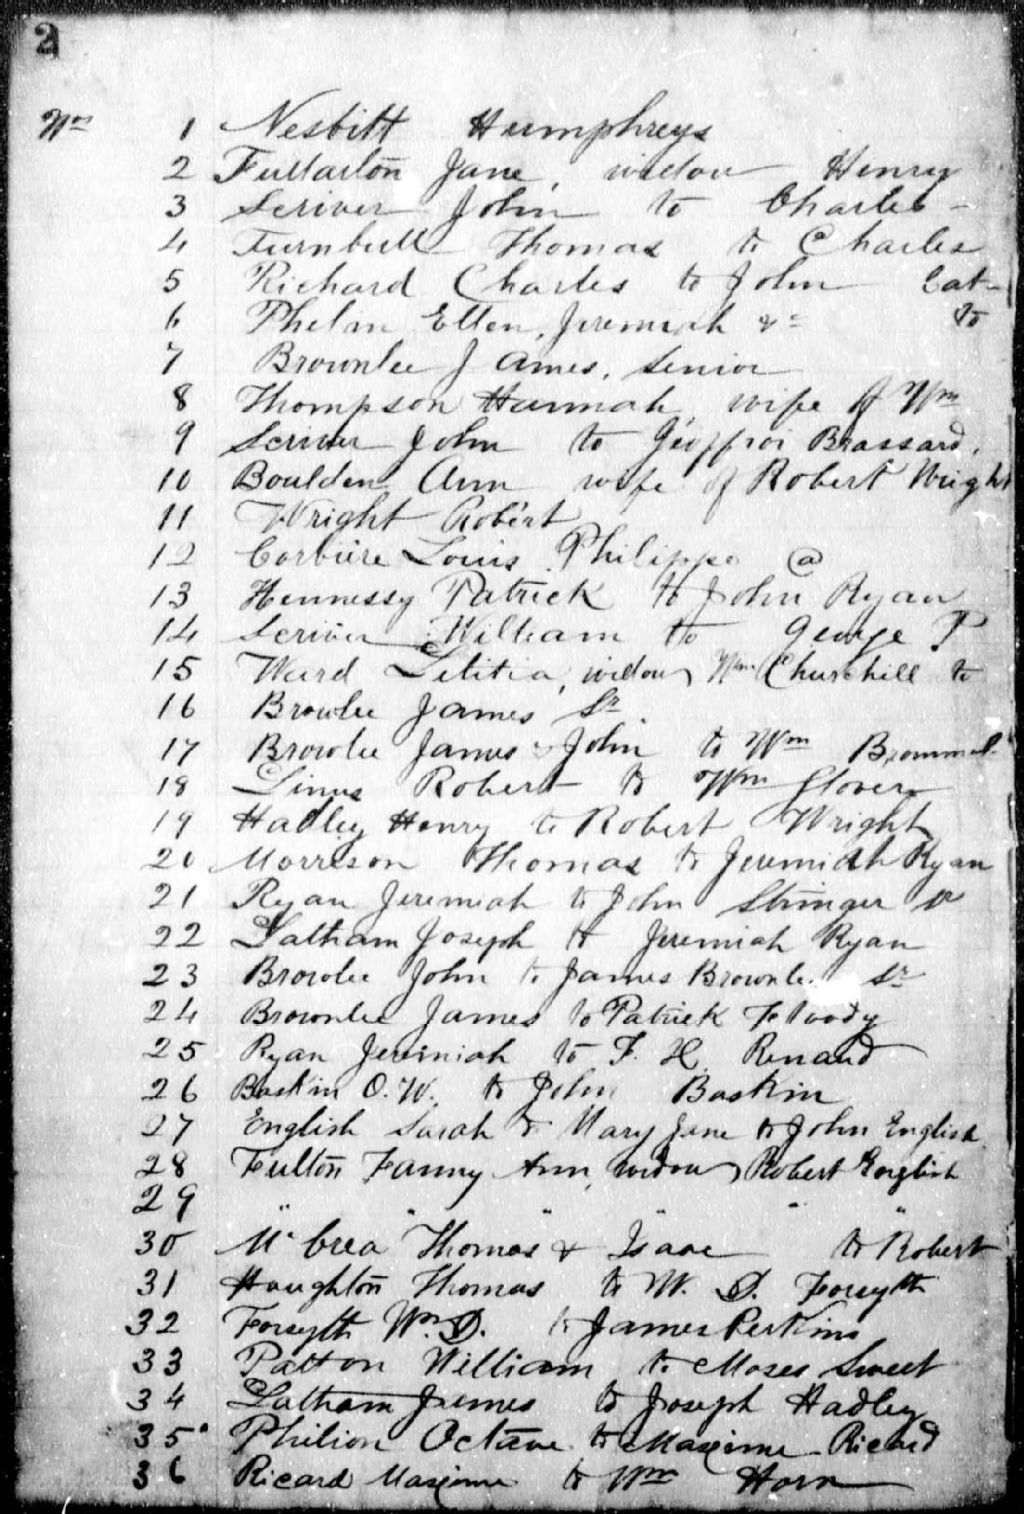 2
Wm 1 Nesbitt Humphreys
2 Fullarton Jane, widow Henry
3 Scriver John to Charles -
4 Turnbull Thomas to Charles
5 Richard Charles to John Cat-
6 Phelan Ellen, Jeremiah &c to
7 Brownlee James, Senior
8 Thompson Hannah, wife of Wm
9 Scriver John to Geoffroi Brassard.
10 Boulden Ann wife of Robert Wright
11 Wright Robert
12 Corbiere Louis Philippe @
13 Hennessy Patrick to John Ryan
14 Scriver William to George P
15 Ward Letitia, widow Wm Churchill to
16 Browlee James Sr
17 Browlee James & John to Wm
18 Robert to Wm Glover
19 Hadley Henry to Robert Wright
20 Morrison Thomas to Jeremiah Ryan
21 Ryan Jeremiah to John Stringer Sr
22 Latham Joseph to Jeremiah Ryan
23 Browlee John to James Brownle Sr
24 Brownlee James to Patrick Floody
25 Ryan Jeremiah to F. H. Renaud
26 Baskin O. W. to John Baskin
27 English Sarah & Mary Jane to John English
28 Fulton Fanny Ann, widow Robert English
29 " " " " " "
30 Mc Crea Thomas & Isaac to Robert
31 Houghton Thomas to W. D. Forsyth
32 Forsyth Wm D. to James Perkins
33 Patton William to Moses Sweet
34 Latham James to Joseph Hadley
35 Philion Octave to Maxime Ricard
36 Ricard Maxime to Wm Horn